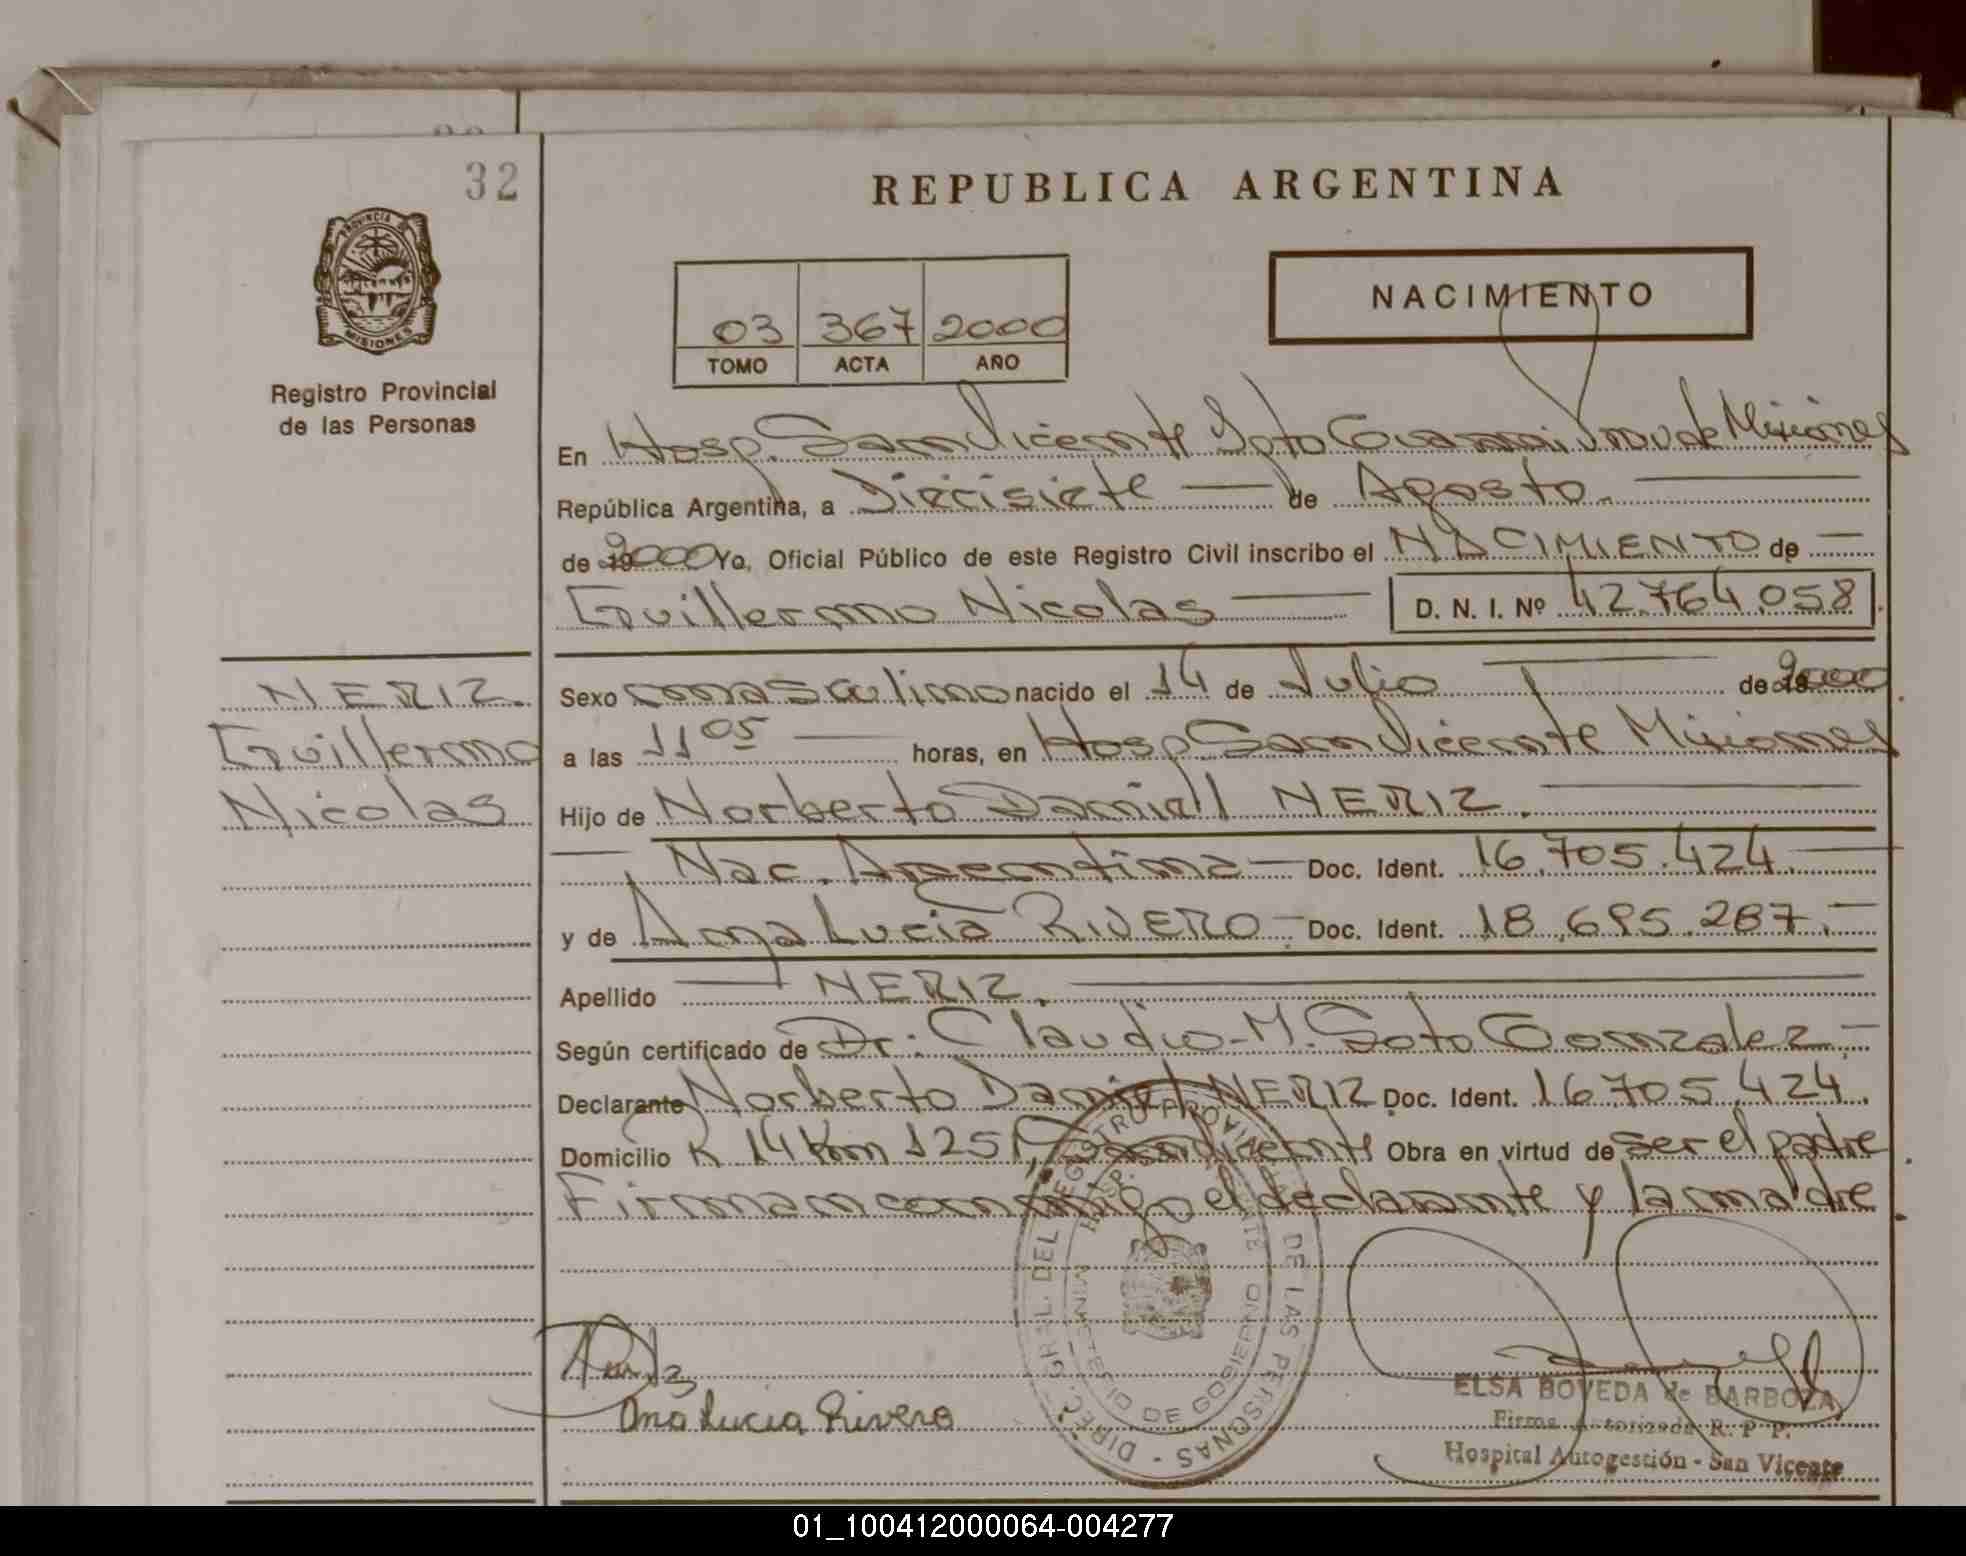 32
REPUBLICA ARGENTINA
PROVINCIA DE
MISIONES
Registro Provincial
de las Personas
03 367 2000
TOMO ACTA AÑO
NACIMIENTO
En Hosp. San Vicente Dpto Guarani Prov de Misiones
República Argentina, a Diecisiete de Agosto.
de 2000 Yo, Oficial Público de este Registro Civil inscribo el NACIMIENTO de
Guillermo Nicolas D. N. I. Nº 42.764.058
NERIZ.
Guillermo
Nicolas
Sexo masculino nacido el 14 de Julio de 2000
a las 11 05 horas, en Hosp San Vicente Misiones
Hijo de Norberto Daniel NERIZ.
Nac. Argentina Doc. Ident. 16.705.424
y de Ana Lucia RIVERO Doc. Ident. 18.695.287.
Apellido NERIZ.
Según certificado de Dr: Claudio M. Soto Gonzalez
Declarante Norberto Daniel NERIZ Doc. Ident. 16.705.424.
Domicilio K 14 Km 1251 San Vicente Obra en virtud de ser el padre
Firman conmigo el declarante y la madre
DIREC. GRAL. DEL REGISTRO PROVINCIAL DE LAS PERSONAS
HOSP. VICENTE
MINISTERIO DE GOBIERNO
Ana Lucia Rivero
ELSA BOVEDA de BARBOZA
Firma Autorizada R. P P.
Hospital Autogestión - San Vicente
01_100412000064-004277